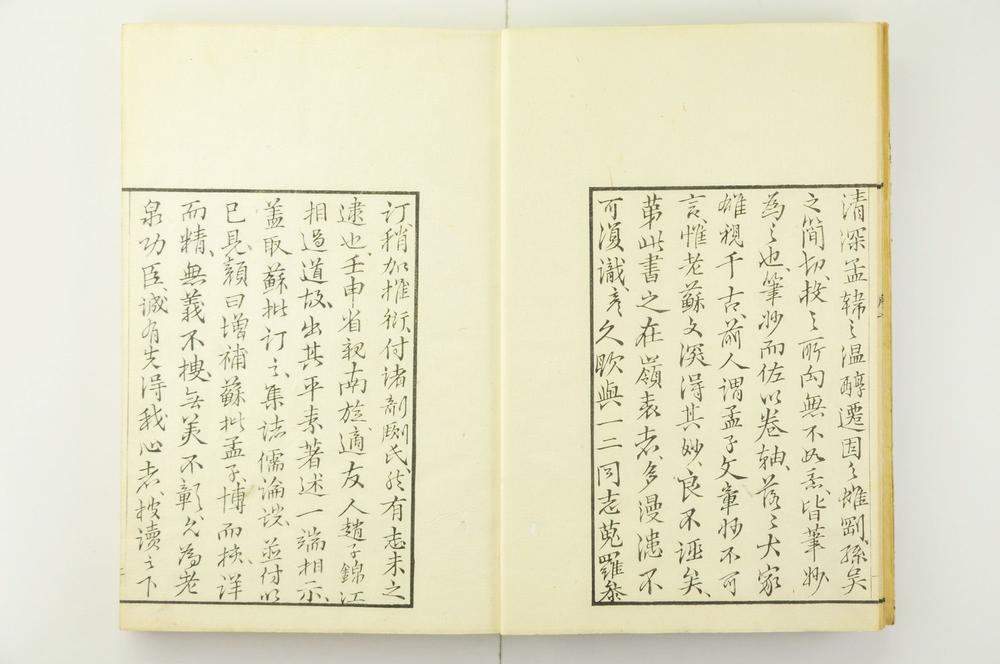 清深孟韓之溫醇遷固之雄剛孫吳
之簡切投之所向無不如意皆筆妙
為之也筆妙而佐以卷軸落之大家
雄視千古前人謂孟子文章妙不可
言惟老蘇文深得其妙良不誣矣
第此書之在嶺表者多漫漶不
可須識意久欲與一二同志蒐羅參
訂稍加推衍付諸剞劂氏然有志未之
逮也壬申省親南旋適友人趙子錦江
相過道故出其平素著述一端相示
蓋取蘇批訂之集諸儒論說並付以
已見顏曰增補蘇批孟子博而核詳
而精無義不搜無美不彰允為老
泉功臣誠有先得我心者披讀之下